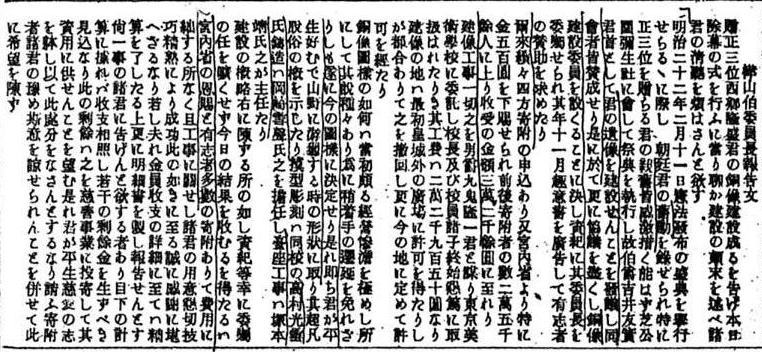 樺山伯委員長報告文
贈正三位西郷隆盛君の銅像建設成るを告げ本日
除幕の式を行ふに當り聊か建設の顛末を述べ諸
君の清聽を煩はさんと欲す
明治二十二年二月十一日憲法發布の盛典を擧行
せらるゝに際し 朝廷君の舊勳を錄せられ特に
正三位を贈らる君の親舊皆感激措く能はず芝公
園彌生社に會して祭典を執行し故伯爵吉井友實
君首として君の遺像を建設せんことを發議し同
會者皆賛成せり是に於て更に協議を盡くし銅像
建設委員を設くることに決し資紀に其委員長を
委囑せられ其年十一月趣意書を廣告して有志者
の賛助を求めたり
爾來續々四方寄附の申込あり又宮内省より特に
金五百圓を下賜せられ前後寄附者の數二萬五千
餘人に上り收受の金額三萬二千餘圓に至れり
建像工事一切之を男爵九鬼隆一君と謀り東京美
術學校に委託し校長及び校員諸子終始懇篤に取
扱はれたり其工費は二萬二千九百五十圓なり
建像の地は最初皇城外の廣塲に許可を得たりし
が都合ありて之を撤回し更に今の地に定めて許
可を經たり
銅像圖樣の如何は當初頗る經營慘澹を極めし所
にして其説種々あり爲に稍着手の遲延を免れざ
りしも遂に今の圖樣に決定せり是れ即ち君が平
生好むで山野に游獵する時の形狀に取り其超凡
脱俗の概を示したり模型彫刻は同校の高村光雲
氏鑄造は岡崎雪聲氏之を擔任し臺座工事は塚本
靖氏之が主任たり
建設の概略右に陳する所の如し資紀等幸に委囑
の任を曠ふせず今日の結果を收むるを得たるは
宮内省の恩賜と有志者多數の寄附ありて費用に
絀する所なく且工事に關せし諸君の用意懇切技
巧精熟により成功此の如きに至る誠に感謝に堪
へざるなり若し夫れ金員收支の詳細に至ては精
算を了したる上更に明細書を製し報告せんとす
尚一事の諸君に告げんと欲する者あり目下の計
算に據れば收支相照し若干の剩餘金を生ずべき
見込なり此の剩餘は之を慈善事業に投寄して其
資用に供せんことを望む是れ君が平生慈愛の志
を躰し以て此處分をなさんとするなり請ふ寄附
者諸君の豫め斯意を諒せられんことを併せて此
に希望を陳ず